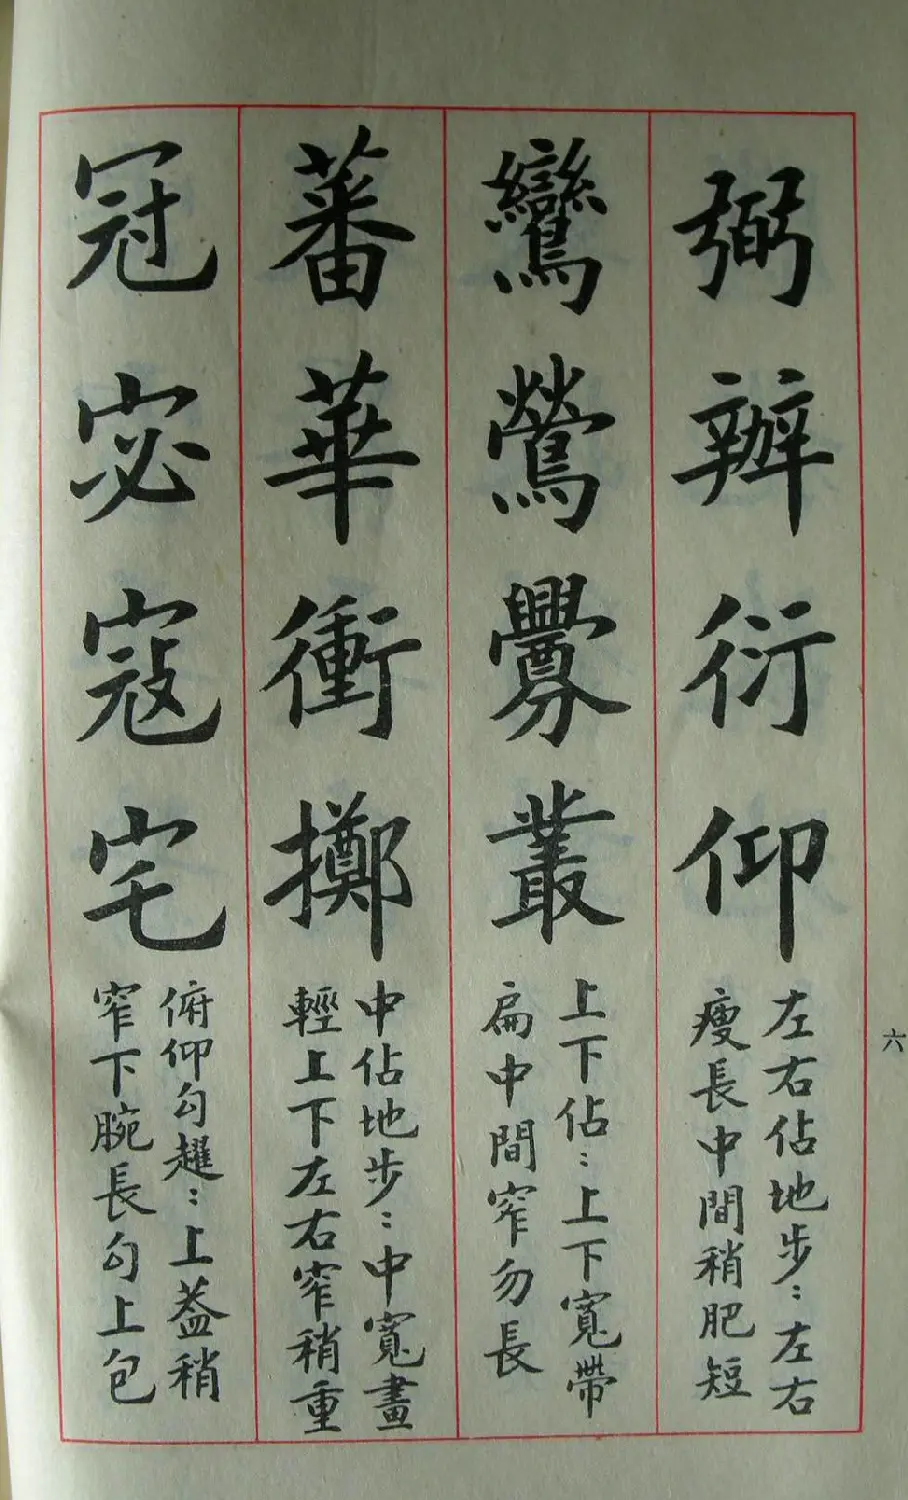 弼辦衍仰
左右佔地步：左右
瘦長中間稍肥短
鸞鶯釁叢
上下佔：上下寬帶
扁中間窄勿長
蕃華衝擲
中佔地步：中寬畫
輕上下左右窄稍重
冠宓寇宅
俯仰勾趯：上蓋稍
窄下腕長勾上包
六